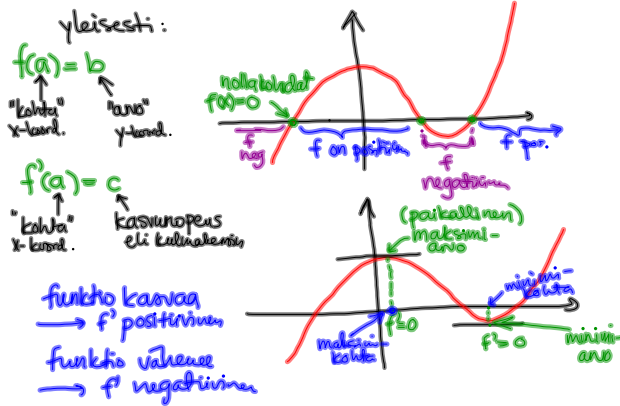 yleisesti:
f(a) = b
"kohta"
x-koord.
"arvo"
y-koord.
f'(a) = c
"kohta"
x-koord.
kasvunopeus
eli kulmakerroin
funktio kasvaa
f' positiivinen
funktio vähenee
f' negatiivinen
nollakohdat
f(x)=0
f
neg
f on positiivin
f
negatiivinen
f pos.
(paikallinen)
maksimi-
arvo
minimi-
kohta
maksimi-
kohta
f'=0
f'=0
minimi-
arvo